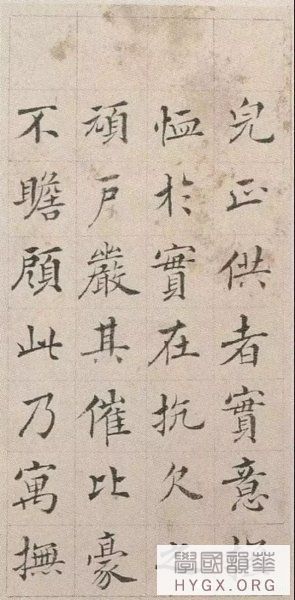 正供者實意
恤於實在抗欠
頑戶嚴其催比豪
不瞻顧此乃寓撫
學國韻華
HYGX.ORG